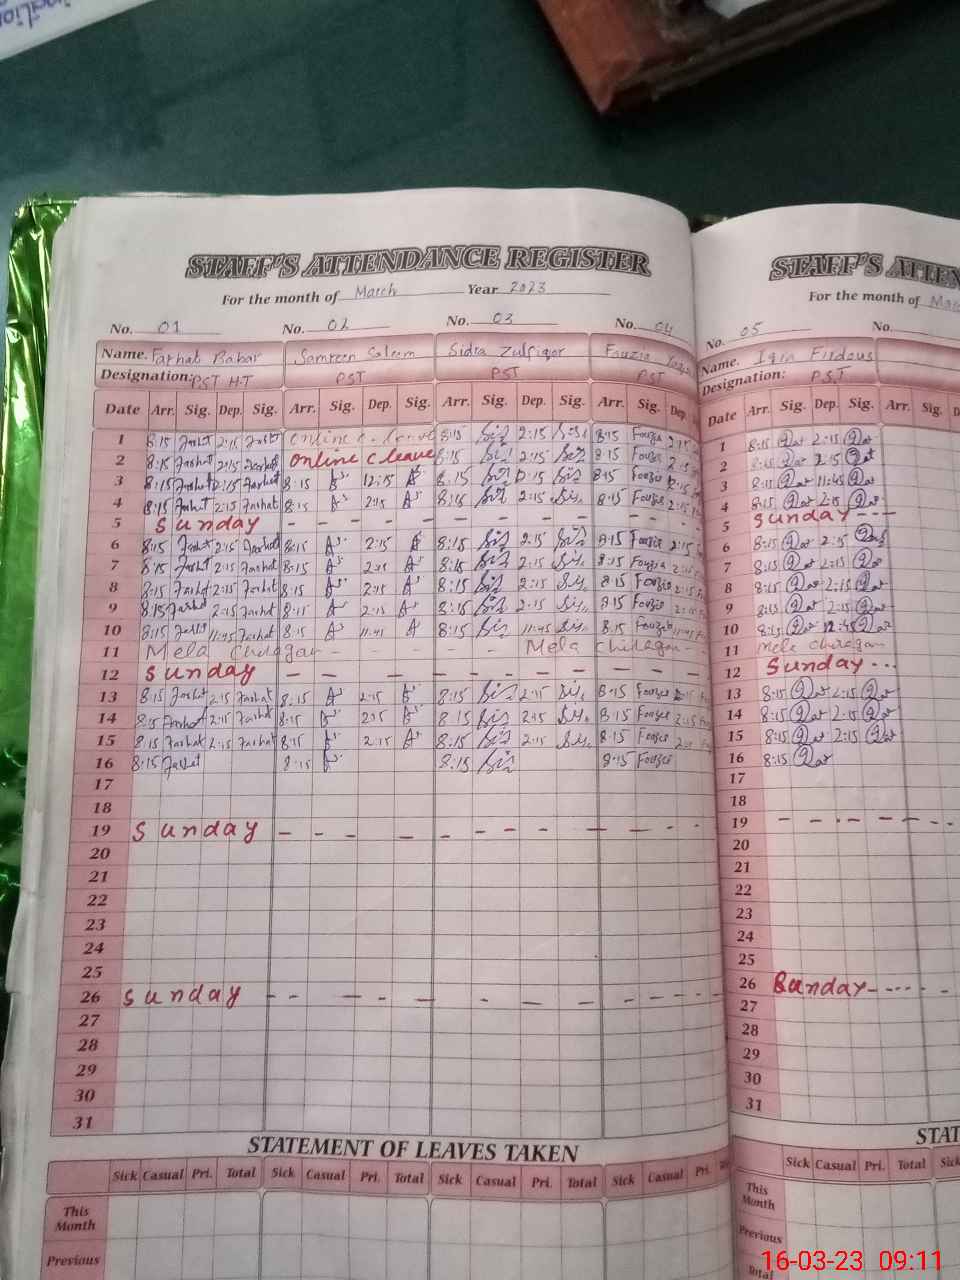 STAFF'S ATTENDANCE REGISTER
For the month of March Year 2023
No. 01 No. 02 No. 03 No. 04
Name. Farhat Bahar Samreen Saleem Sidra Zulfiqar Fouzia
Designation: PST H.T PST PST PST
Date Arr. Sig. Dep. Sig. Arr. Sig. Dep. Sig. Arr. Sig. Dep. Sig. Arr. Sig. Dep.
1 8:15 Farhat 2:15 Farhat online c. leave 8:15 2:15 8:15 Fouzia 2:15
2 8:15 Farhat 2:15 Farhat online c leave 8:15 2:15 8:15 Fouzia 2:15
3 8:15 Farhat 12:15 Farhat 8:15 12:15 8:15 12:15 8:15 Fouzia 12:15
4 8:15 Farhat 2:15 Farhat 8:15 2:15 8:15 2:15 8:15 Fouzia 2:15
5 Sunday - - - - - - - - - - -
6 8:15 Farhat 2:15 Farhat 8:15 2:15 8:15 2:15 8:15 Fouzia 2:15
7 8:15 Farhat 2:15 Farhat 8:15 2:15 8:15 2:15 8:15 Fouzia 2:15
8 8:15 Farhat 2:15 Farhat 8:15 2:15 8:15 2:15 8:15 Fouzia 2:15
9 8:15 Farhat 2:15 Farhat 8:15 2:15 8:15 2:15 8:15 Fouzia 2:15
10 8:15 Farhat 11:45 Farhat 8:15 11:45 8:15 11:45 8:15 Fouzia 11:45
11 Mela Chiragan - - - - - - Mela Chiragan - -
12 Sunday - - - - - - - - - - -
13 8:15 Farhat 2:15 Farhat 8:15 2:15 8:15 2:15 8:15 Fouzia 2:15
14 8:15 Farhat 2:15 Farhat 8:15 2:15 8:15 2:15 8:15 Fouzia 2:15
15 8:15 Farhat 2:15 Farhat 8:15 2:15 8:15 2:15 8:15 Fouzia 2:15
16 8:15 Farhat 8:15 8:15 8:15 Fouzia
17
18
19 Sunday - - - - - - - - - - -
20
21
22
23
24
25
26 Sunday - - - - - - - - - - -
27
28
29
30
31
STATEMENT OF LEAVES TAKEN
Sick Casual Pri. Total Sick Casual Pri. Total Sick Casual Pri. Total Sick Casual Pri.
This
Month
Previous
STAFF'S ATTEN
For the month of Mar
No. 05 No.
Name. Iqra Firdous
Designation: PST
Date Arr. Sig. Dep. Sig. Arr. Sig.
1 8:15 2:15
2 8:15 2:15
3 8:15 11:45
4 8:15 2:15
5 Sunday - - -
6 8:15 2:15
7 8:15 2:15
8 8:15 2:15
9 8:15 2:15
10 8:15 12:45
11 mela chiragan
12 Sunday - - -
13 8:15 2:15
14 8:15 2:15
15 8:15 2:15
16 8:15
17
18
19 - - - - - -
20
21
22
23
24
25
26 Sunday - - - - -
27
28
29
30
31
STAT
Sick Casual Pri. Total Sick
This
Month
Previous
Total
16-03-23 09:11